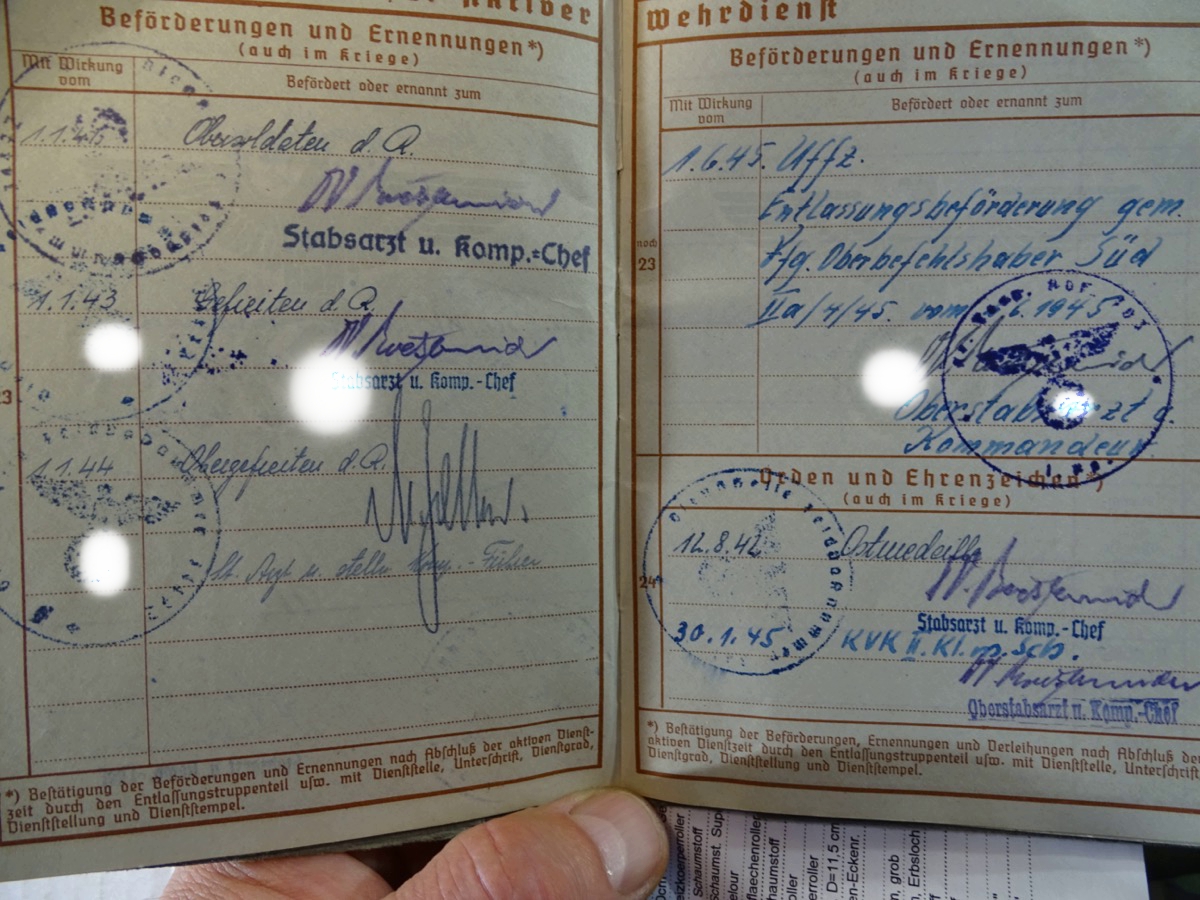 Aktiver
Beförderungen und Ernennungen*)
(auch im Kriege)
Mit Wirkung
vom
Befördert oder ernannt zum
Obersoldaten d. R.
Stabsarzt u. Komp.=Chef
1.1.43 Gefreiten d. R.
Stabsarzt u. Komp.-Chef
1.1.44 Obergefreiten d. R.
*) Bestätigung der Beförderungen und Ernennungen nach Abschluß der aktiven Dienst-
zeit durch den Entlassungstruppenteil usw. mit Dienststelle, Unterschrift, Dienstgrad,
Dienststellung und Dienststempel.
Wehrdienst
Beförderungen und Ernennungen*)
(auch im Kriege)
Mit Wirkung
vom
Befördert oder ernannt zum
1.6.45. Uffz.
Entlassungsbeförderung gem.
noch
23
Vfg. Oberbefehlshaber Süd
IIa/4/45. vom 6.1945
Oberstabsarzt u.
Kommandeur
Orden und Ehrenzeichen*)
(auch im Kriege)
12.8.42 Ostmedaille
24
Stabsarzt u. Komp.-Chef
30.1.45 KVK II. Kl. m. Sch.
Oberstabsarzt u. Komp.-Chef
*) Bestätigung der Beförderungen, Ernennungen und Verleihungen nach Abschluß der
aktiven Dienstzeit durch den Entlassungstruppenteil usw. mit Dienststelle, Unterschrift
Dienstgrad, Dienststellung und Dienststempel.
Schaumstoff
Schaumst. Sup
D=11,5 cm